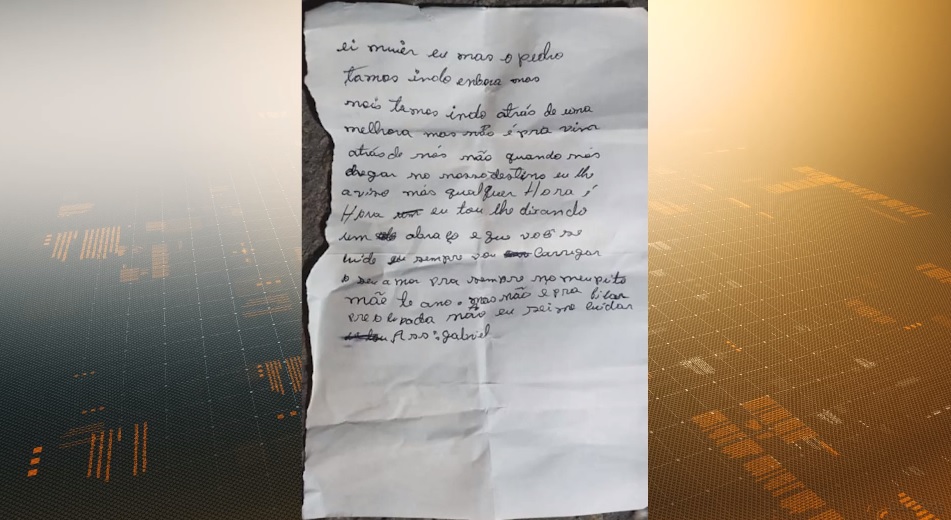 ei muiér eu mas o pedro
tamos indo enbora mas
nois tamos indo atrás de uma
melhora mas não é pra vim
atrás de nós não quando nós
chegar no nosso destino eu lhe
aviso más qualquer Hora é
Hora eu tou lhe dixando
um abraço e que você se
cuide eu sempre vou Carregar
o seu amor pra sempre no meu pito
mãe te amo. mas não é pra ficar
não eu sei me cuidar
Ass: gabriel